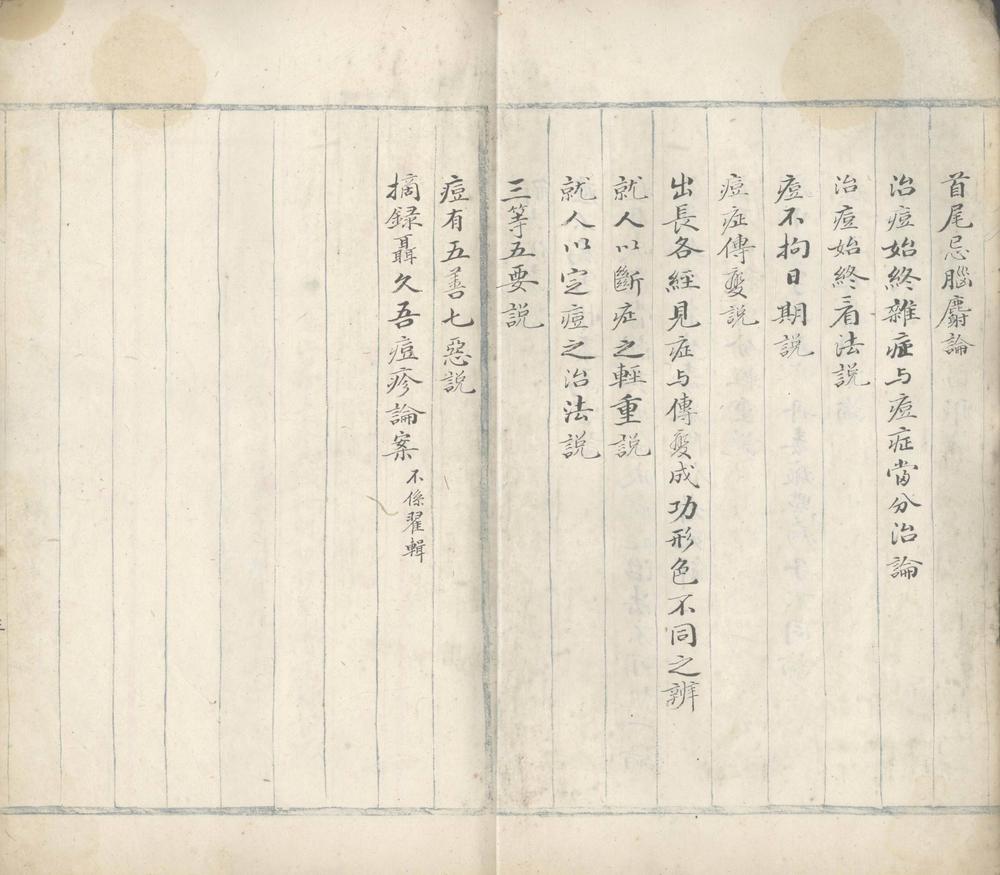 首尾忌腦麝論
治痘始終雜症与痘症當分治論
治痘始終看法説
痘不拘日期説
痘症傳變説
出長各經見症与傳變成功形色不同之辨
就人以斷症之輕重説
就人以定痘之治法説
三等五要説
痘有五善七惡説
摘録聶久吾痘疹論案 不係翟輯